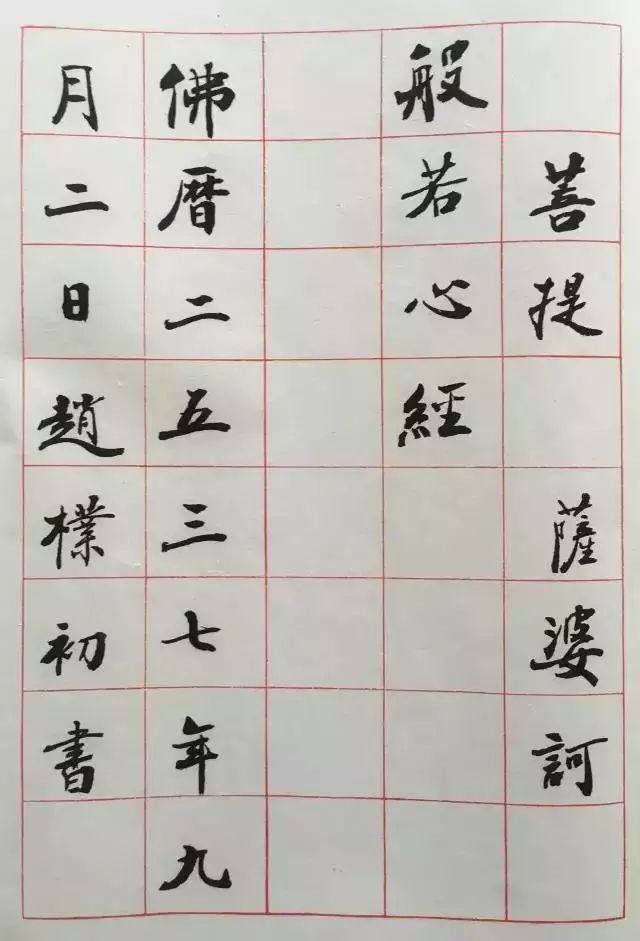 菩提 薩婆訶
般若心經
佛曆二五三七年九
月二日趙樸初書